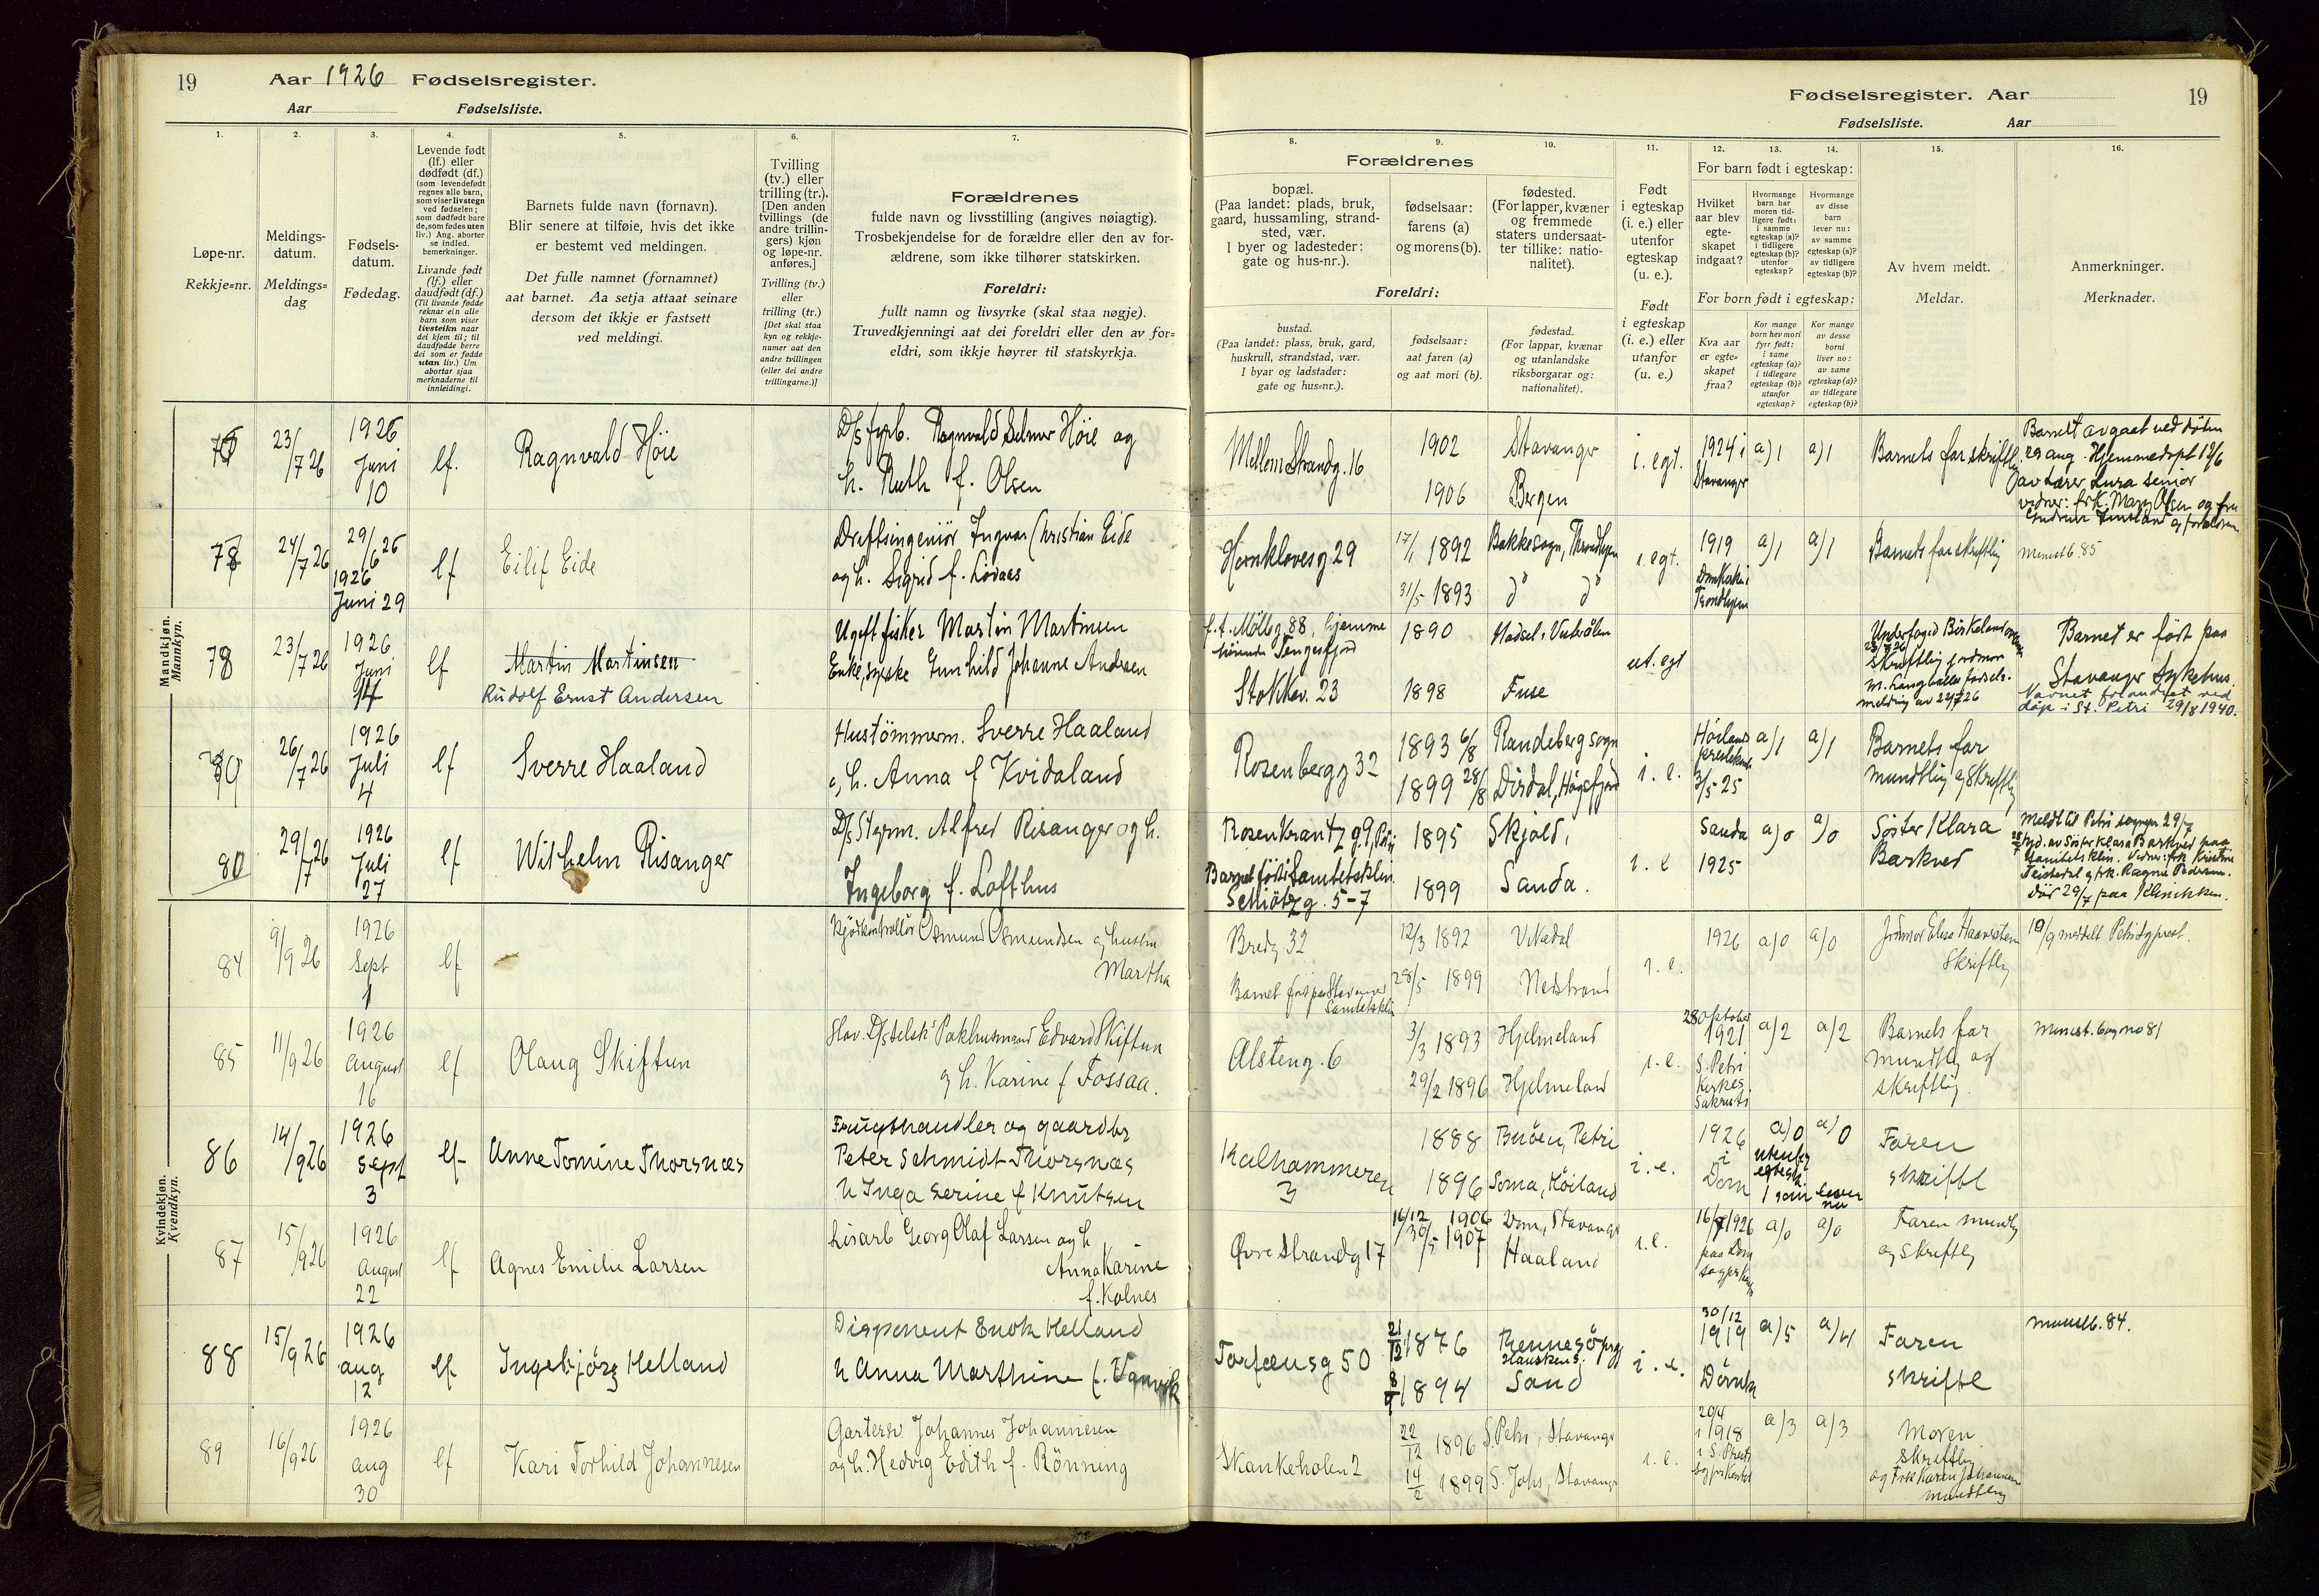 19 Aar 1926 Fødselsregister.
Aar Fødselsliste.
1. 2. 3. 4. 5. 6. 7.
Løpe-nr.
Rekkje=nr.
Meldings-
datum.
Meldings=
dag
Fødsels-
datum.
Fødedag.
Levende født
(lf.) eller
dødfødt (df.)
(som levendefødt
regnes alle barn,
som viser livstegn
ved fødselen;
som dødfødt bare
de, som fødes uten
liv.) Ang. aborter
se indled.
bemerkninger.
Livande født
(lf.) eller
daudfødt (df.)
(Til livande fødde
reknar ein alle
barn som viser
livsteikn naar
dei kjem til; til
daudfødde berre
dei som er fødde
utan liv.) Um
abortar sjaa
merknaderne til
innleidingi.
Barnets fulde navn (fornavn).
Blir senere at tilføie, hvis det ikke
er bestemt ved meldingen.
Det fulle namnet (fornamnet)
aat barnet. Aa setja attaat seinare
dersom det ikkje er fastsett
ved meldingi.
Tvilling
(tv.) eller
trilling (tr.).
[Den anden
tvillings (de
andre trillin-
gers) kjøn
og løpe-nr.
anføres.]
Tvilling (tv.)
eller
trilling (tr.)
[Det skal staa
kyn og rekkje-
numer aat den
andre tvillingen
(eller dei andre
trillingarne.)]
Forældrenes
fulde navn og livsstilling (angives nøiagtig).
Trosbekjendelse for de forældre eller den av for-
ældrene, som ikke tilhører statskirken.
Foreldri:
fullt namn og livsyrke (skal staa nøgje).
Truvedkjenningi aat dei foreldri eller den av for=
eldri, som ikkje høyrer til statskyrkja.
Mandkjøn.
Mannkyn.
23/7 26
1926
Juni
10
lf.
Ragnvald Høie
D/s fyrb. Ragnvald Selmer Høie og
h. Ruth f. Olsen
78
24/7 26
29/6 26
1926
Juni 29
lf
Eilif Eide
Driftsingeniör Ingvar Christian Eide
og h. Sigrid f. Lövaas
78
23/7 26
1926
Juni
14
lf
Martin Martinsen
Rudolf Ernst Andersen
Ugift fisker Martin Martinsen
Enke, syerske Gunhild Johanne Andersen
26/7 26
1926
Juli
4
lf
Sverre Haaland
Hustömmerm. Sverre Haaland
og h. Anna f Kvidaland
80
29/7 26
1926
Juli
27
lf
Wilhelm Risanger
D/s Styrm. Alfred Risanger og h.
Ingeborg f. Lofthus
Kvindekjøn.
Kvendkyn.
84
9/9 26
1926
Sept
1
lf
Kjödkontrollör Osmund Osmundsen og hustru
Martha
85
11/9 26
1926
August
16
lf
Olaug Skiftun
Stav. D/s selsk's Pakhusmand Edvard Skiftun
og h. Karine f Fossaa.
86
14/9 26
1926
Sept
3
lf
Anne Tomine Thorsnæs
Frugthandler og gaardbr
Peter Schmidt Thorsnæs
h Inga Serine f Knutsen
87
15/9 26
1926
August
22
lf
Agnes Emilie Larsen
Lösarb Georg Olaf Larsen og h
Anna Karine
f. Kolnes
88
15/9 26
1926
aug
12
lf
Ingebjörg Helland
Disponent Enok Helland
h Anna Marthine f. Vanvik
89
16/9 26
1926
aug
30
lf
Kari Torhild Johannesen
Gartersv. Johannes Johannesen
og h. Hedvig Edith f. Rönning
Fødselsregister. Aar 19
Fødselsliste. Aar
8. 9. 10. 11. 12. 13. 14. 15. 16.
Forældrenes
bopæl.
(Paa landet: plads, bruk,
gaard, hussamling, strand-
sted, vær.
I byer og ladesteder:
gate og hus-nr.).
fødselsaar:
farens (a)
og morens (b).
fødested.
(For lapper, kvæner
og fremmede
staters undersaat-
ter tillike: natio-
nalitet).
Foreldri:
bustad.
(Paa landet: plass, bruk, gard,
huskrull, strandstad, vær.
I byar og ladstader:
gate og hus=nr.).
fødselsaar:
aat faren (a)
og aat mori (b).
fødestad.
(For lappar, kvænar
og utanlandske
riksborgarar og:
nationalitet).
Født
i egteskap
(i. e.) eller
utenfor
egteskap
(u. e.).
Født
i egteskap
(i. e.) eller
utanfor
(u. e.)
For barn født i egteskap:
Hvilket
aar blev
egte-
skapet
indgaat?
Hvormange
barn har
moren tid-
ligere født:
i samme
egteskap (a)?
i tidligere
egteskap (b)?
utenfor
egteskap?
Hvormange
av disse
barn
lever nu:
av samme
egteskap (a)?
av tidligere
egteskap (b)?
For born født i egteskap:
Kva aar
er egte=
skapet
fraa?
Kor mange
born hev mori
fyrr født:
i same
egteskap (a)?
i tidlegare
egteskap (b)?
utanfor
egteskap?
Kor mange
av desse
borni
liver no:
av same
egteskap (a)?
av tidlegare
egteskap (b)?
Av hvem meldt.
Meldar.
Anmerkninger.
Merknader.
Mellem Strandg. 16
1902
1906
Stavanger
Bergen
i. egt.
1924 i
Stavanger
a) 1 a) 1
Barnets far skriftlig
Barnet avgaat ved döden
29 aug. Hjemmedøpt 12/6
av Lærer Lura senior
vidner: frk. Mary Olsen og fru
og forældrene
Hernklovesg 29
17/1 1892
31/5 1893
Bakkesogn, Throndhjem
do do
i. egt.
1919
Domkirken i
Trondhjem
a) 1 a) 1
Barnets far skriftlig
menestb. 85
f. t. Möllеg. 88, hjemme
hörende Tengesfjord
Stokkav. 23
1890
1898
Hadsel, Vesterålen
Fuse
ut. egt
Underfoged Birkeland
Skriftlig jordmor
M. Langballes fødsels-
melding av 24/7 26
Barnet er født paa
Stavanger Sykehus.
Navnet forandret ved
dåp i St. Petri 29/8 1940.
Rosenbergg 32
1893 6/8
1899 28/8
Randeberg sogn
Dirdal, Høgsfjord
i. e.
Höiland
prestekontor
3/5 25
a) 1 a) 1
Barnets far
mundtlig og skriftlig
Rosenkrantzg. 9, Petri
Barnet født i Sanitetsklin.
Schiötzg. 5-7
1895
1899
Skjold,
Sanda.
i. e
Sauda
1925
a) 0 a) 0
Søster Klara
Barkved
Meldt til Petri sogнepr 29/7
av Søster Klara Barkved paa
Sanitetsklin. Vidner: frk Kristine
Teistedal og frk. Ragna Pedersen.
dör 29/7 paa Klinikken.
Bredg 32
Barnet født paa Stavanger
Sanitetsklin
12/3 1892
28/5 1899
Vikedal
Nedstrand
i. e.
1926
a) 0 a) 0
Jordmor Elese Haaversten
Skriftlig
10/9 meddelt Petri sgprest.
Alsteng. 6
3/3 1893
29/2 1896
Hjelmeland
Hjelmeland
i. e.
28 oktober
1921
S. Petri
Kirkes
Sakristi
a) 2 a) 2
Barnets far
mundtlig og
skriftlig
menest. bog no 81
Kalhammeren
3
1888
1896
Buöen, Petri
Soma, Höiland
i. e.
1926
i
Dom
a) 0 a) 0
utenfor
egtesk.
1 som lever
nu
Faren
skriftl
Øvre Strandg 17
16/12 1906
30/5 1907
Dom, Stavanger
Haaland
i. e.
16/7 1926
paa Dom
sogpr Kont
a) 0 a) 0
Faren mundtlig
og skriftlig
Torfæusg 50
21/12 1876
8/9 1894
Rennesö prgj
Hauskens.
Sand
i. e.
30/12
1919
Domk
a) 5 a) 4
Faren
skriftl
menestb. 84.
Skankeholen 2
22/12 1896
14/2 1899
S. Petri, Stavanger
S. Johs, Stavanger
i. e.
20/4
1918
i S. Petri
sogprKontor
a) 3 a) 3
Moren
skriftlig
og Frk Karen Johannesen
mundtlig